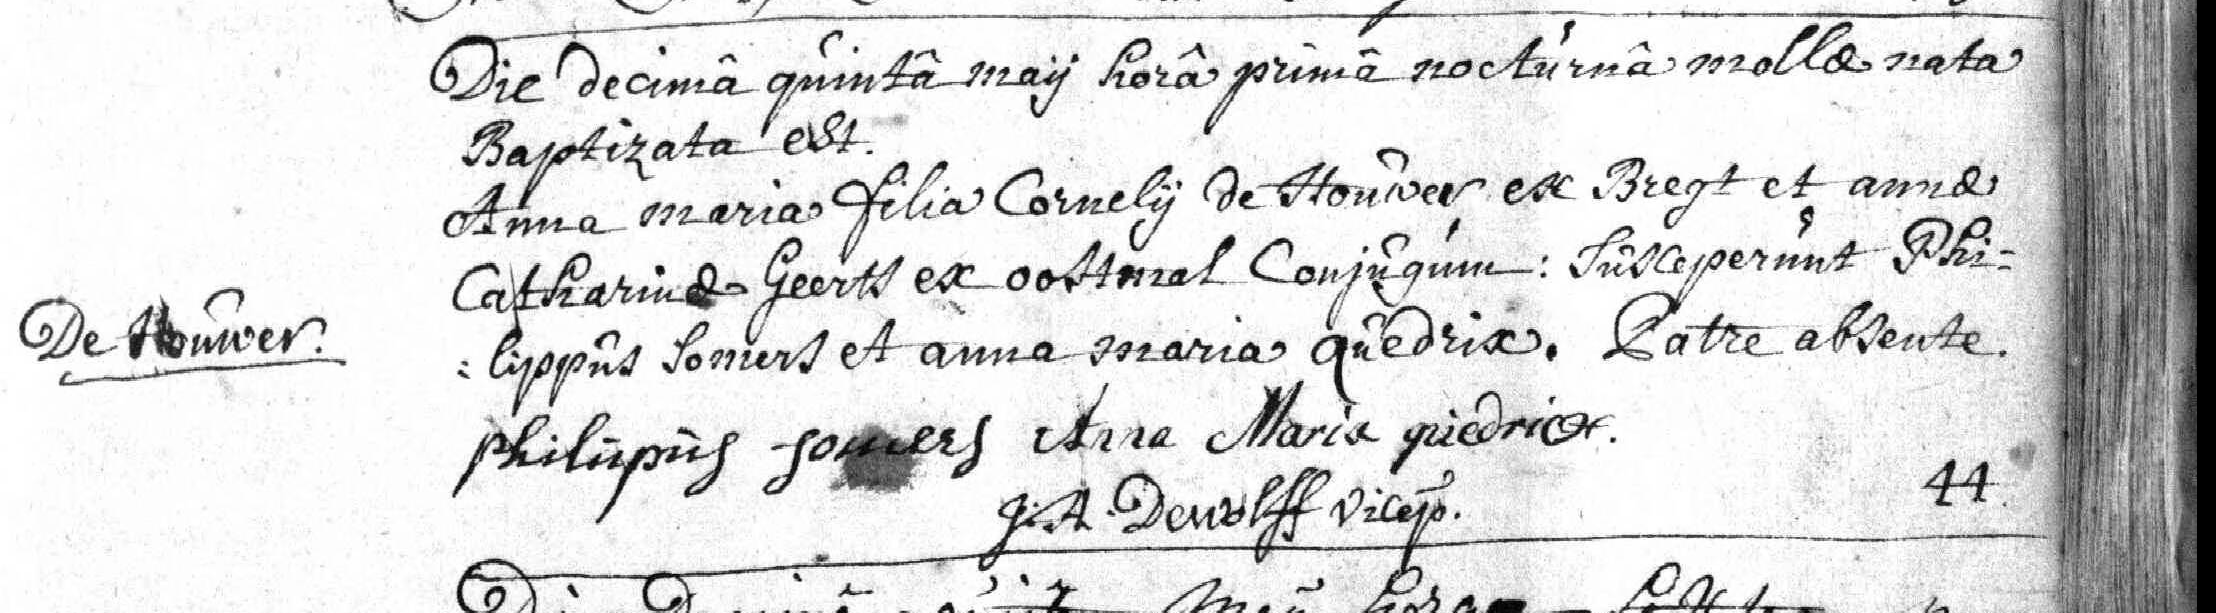 Die decimâ quintâ maij horâ primâ nocturnâ mollæ nata
Baptizata est.
Anna maria filia Cornelij de Houwer ex Bregt et annæ
Catharinæ Geerts ex oostmal Conjugum : Susceperunt Phi-
De Houwer.
: lippus Somers et anna maria quedrix. Patre absente.
philippus somers Anna Maria quedricx.
J: A. Dewolff vicep.
44